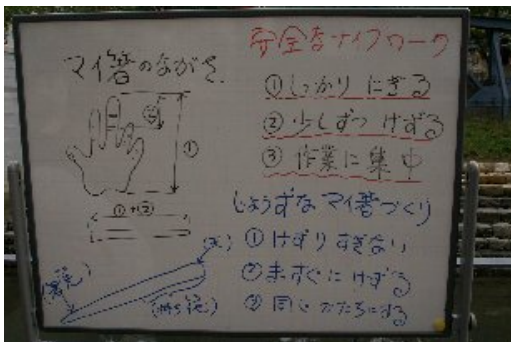 マイ箸のながさ
②
①
①+②
安全なナイフワーク
①しっかり にぎる
②少しずつ けずる
③作業に集中
じょうずな マイ箸づくり
①けずり すぎない
②まっすぐに けずる
③同じ かたちにする
(天)
(箸先)